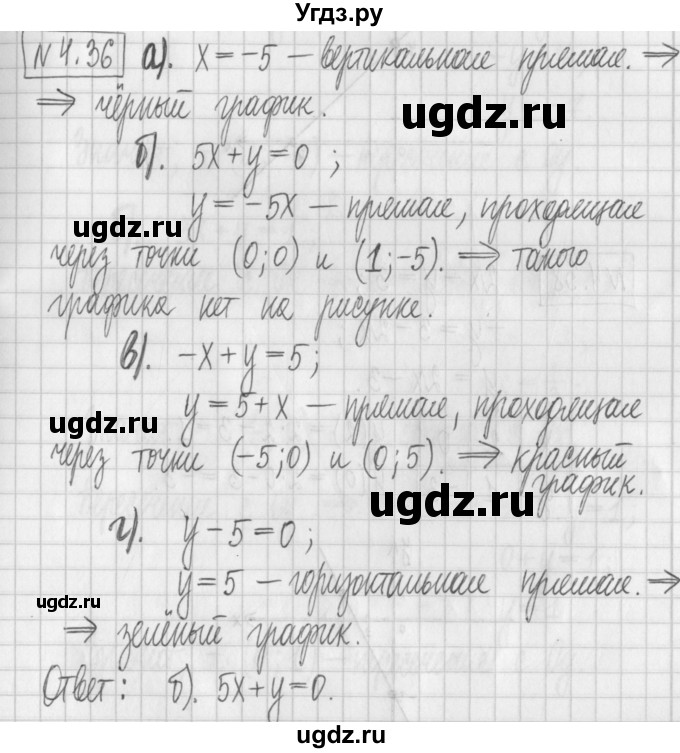 Угдз.ру
№4.36 а). x = -5 — вертикальная прямая. ⇒
⇒ чёрный график.
ugdz.ru
б). 5x + y = 0 ;
y = -5x — прямая, проходящая
ugdz.ru
через точки (0;0) и (1;-5). ⇒ такого
графика нет на рисунке.
в). -x + y = 5;
y = 5 + x — прямая, проходящая
ugdz.ru
через точки (-5;0) и (0;5). ⇒ красный
график.
ugdz.ru
г). y - 5 = 0 ;
y = 5 — горизонтальная прямая. ⇒
ugdz.ru
⇒ зелёный график.
Ответ: б). 5x + y = 0.
ugdz.ru